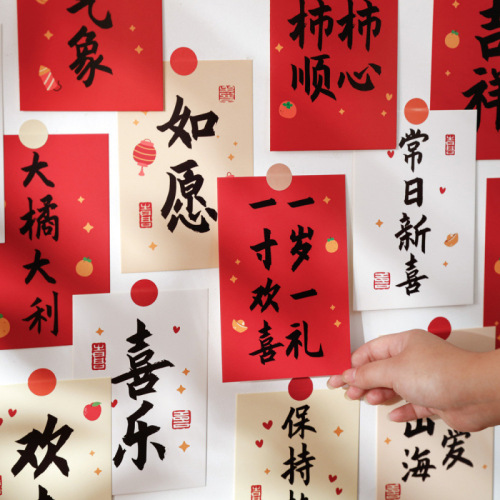 气象
如愿
柿柿
顺心
吉祥
大橘大利
一岁一礼
一寸欢喜
常日新喜
喜乐
欢
保持
爱
山海